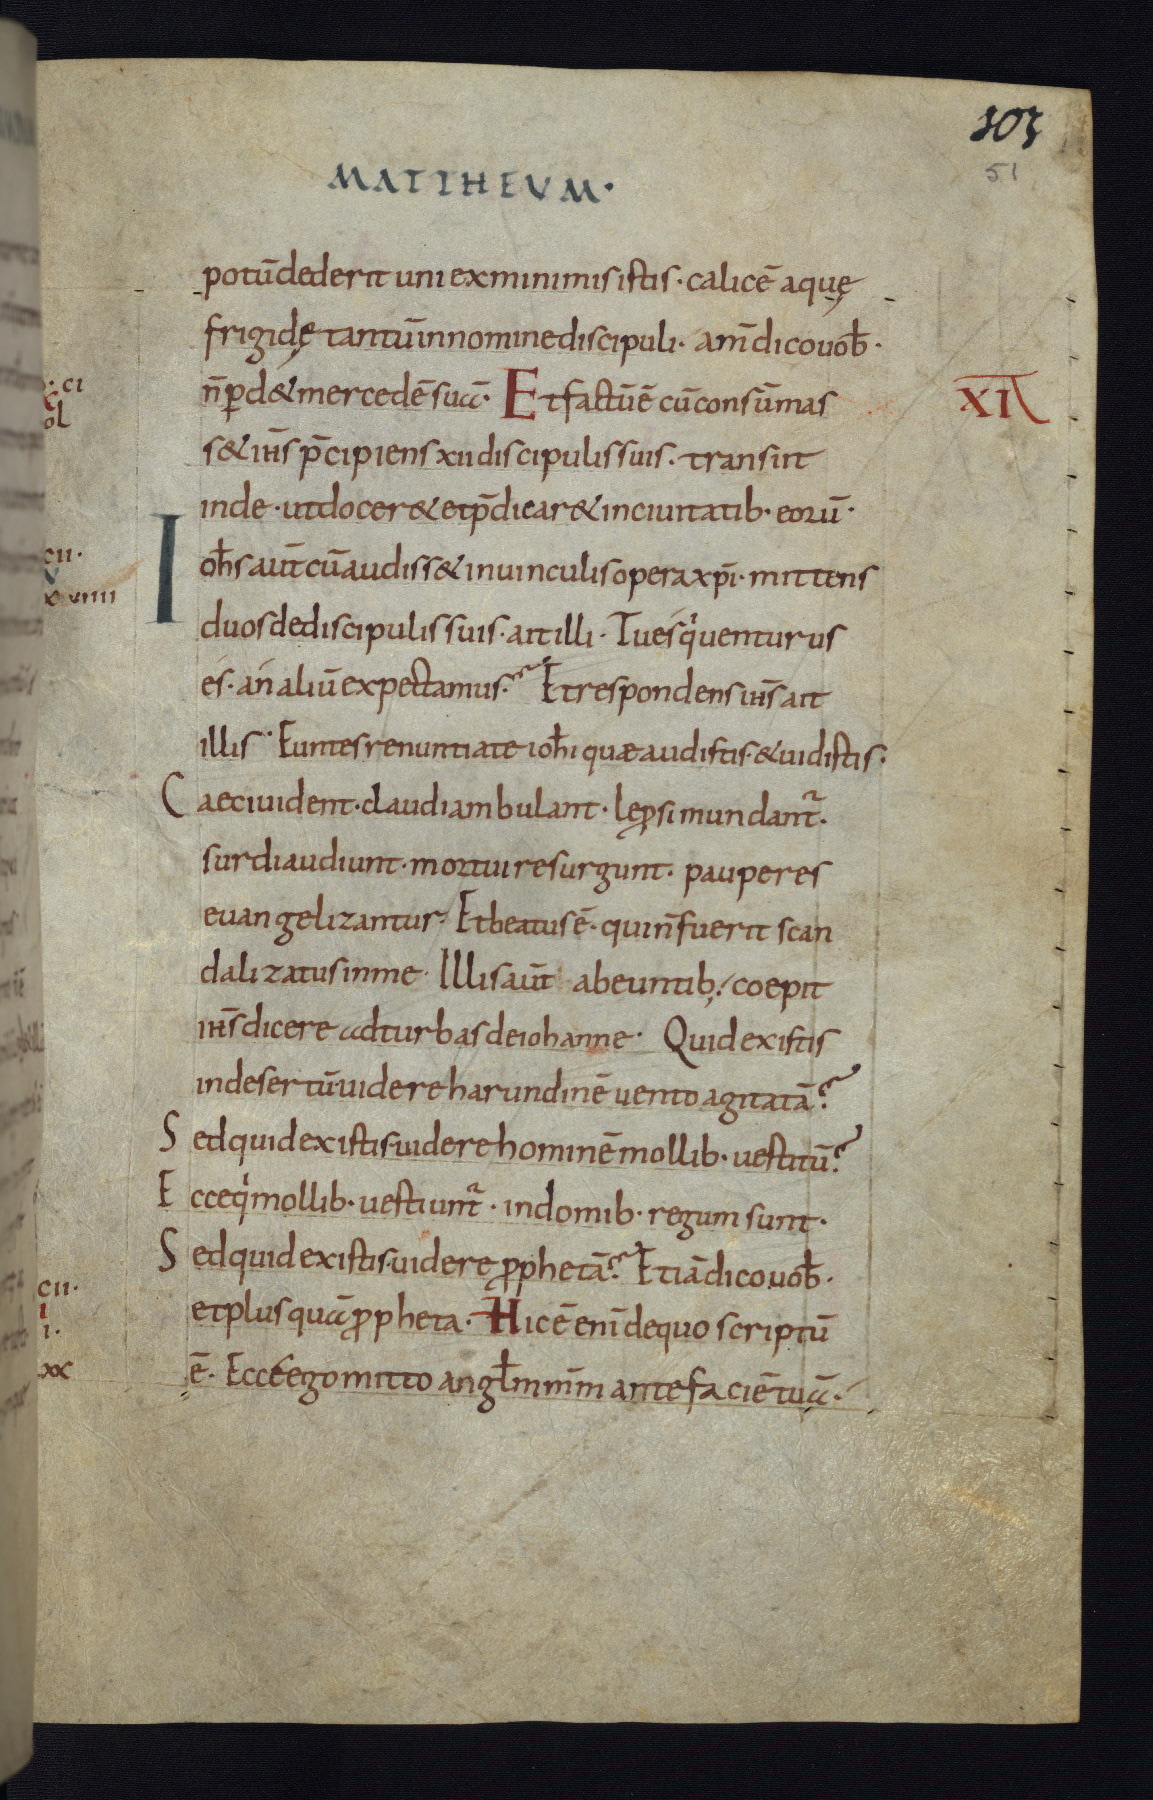 103
51
MATTHEUM·
potūdederit uni ex minimis istis · calicē aquę
frigidę tantū in nomine discipuli · am̄ dico uob̄ ·
n̄ ꝑd& mercedē suā · Et factū ē cū consūmas
XII
s& ih̄s p̄cipiens xii discipulis suis · transiit
inde · ut docer& et p̄dicar& in ciuitatib · eorū ·
Ioh̄s aut̄ cū audiss& in uinculis opera xp̄i · mittens
duos de discipulis suis · ait illi · Tu es qͥ uenturus
es · an aliū expectamus ? Et respondens ih̄s ait
illis · Euntes renuntiate ioh̄i quae audistis · & uidistis ·
Caeci uident · claudi ambulant · leꝓsi mundant᷑ ·
surdi audiunt · mortui resurgunt · pauperes
euangelizantur · Et beatus ē · qui n̄ fuerit scan
dalizatus in me · Illis aut̄ abeuntib; coepit
ih̄s dicere ad turbas de iohanne · Quid existis
in desertū uidere harundinē uento agitatā ?
Sed quid existis uidere hominē mollib · uestitū ?
Ecce qͥ mollib · uestiunt᷑ · in domib · regum sunt ·
Sed quid existis uidere ꝓphetā ? Etiā dico uob̄ ·
et plus quā ꝓpheta · Hic ē eni̅ de quo scriptū
ē · Ecce ego mitto angl̄m m̄m ante faciē tuā ·